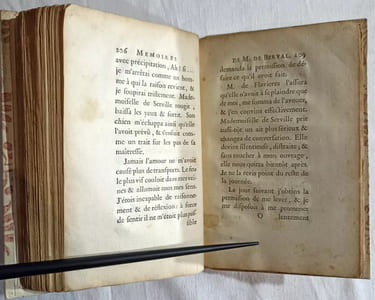 206 MEMOIRES
avec précipitation, Ah! si...
je m'arrêtai comme un hom-
me à qui la raison revient, &
je soupirai tristement. Made-
moiselle de Serville rougit,
baissa les yeux & sortit. Son
chien m'échappa ainsi qu'elle
l'avoit prévû, & s'enfuit com-
me un trait sur les pas de sa
maîtresse.
Jamais l'amour ne m'avoit
causé plus de transports. Le feu
le plus vif couloit dans mes vei-
nes & allumoit tous mes sens.
J'étois incapable de raisonne-
ment & de réflexion: à force
de sentir il ne m'étoit plus pos-
sible
DE M. DE BERVAL. 209
demanda la permission de dé-
faire ce qu'il avoit fait.
M. de Flavieres l'assura
qu'elle n'avoit à se plaindre que
de moi, me somma de l'avouer,
& j'en convins effectivement.
Mademoiselle de Serville prit
aussi-tôt un air plus sérieux &
changea de conversation. Elle
devint silentieuse, distraite, &
sans toucher à mon ouvrage,
elle nous quitta bientôt après.
Je ne la revis point du reste de
la journée.
Le jour suivant j'obtins la
permission de me lever, & je
me disposois à me promener
O lentement